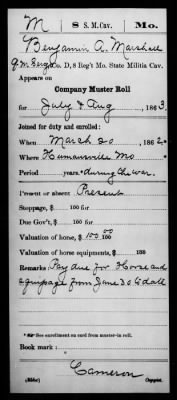 M 8 S. M. Cav. Mo.
Benjamin A. Marshall
Q.M. Sergt, Co. D, 8 Reg't Mo. State Militia Cav.
Appears on
Company Muster Roll
for July & Aug, 1863.
Joined for duty and enrolled:
When March 20, 1862.
Where Humansville Mo
Period years. * during the war.
Present or absent Present
Stoppage, $ 100 for
Due Gov't, $ 100 for
Valuation of horse, $ 100 00 100
Valuation of horse equipments, $ 100
Remarks Pay due for Horse and
equipage from June 30 to date
* See enrollment on card from muster-in roll.
Book mark:
Cameron
Copyist.